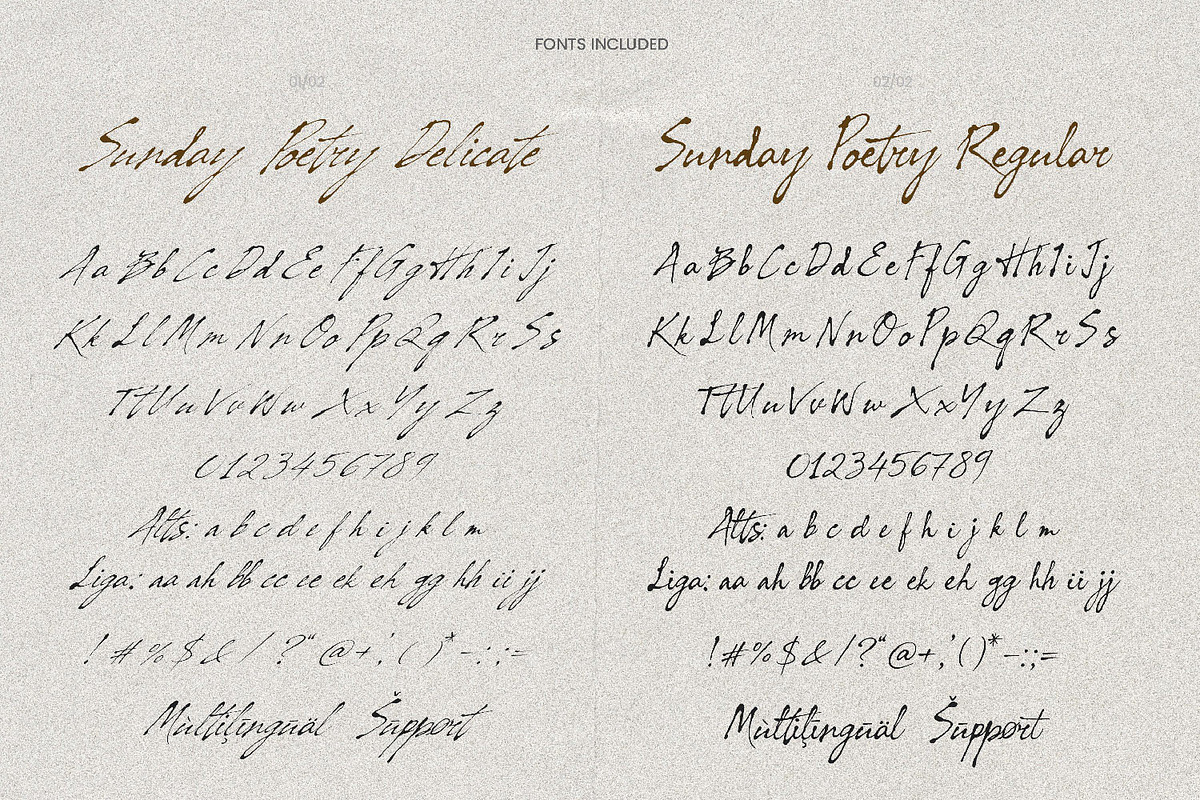 FONTS INCLUDED
01/02
Sunday Poetry Delicate
Aa Bb Cc Dd Ee Ff Gg Hh Ii Jj
Kk Ll Mm Nn Oo Pp Qq Rr Ss
Tt Uu Vv Ww Xx Yy Zz
0123456789
Alts: a b c d e f h i j k l m
Liga: aa ah bb cc ee ek eh gg hh ii jj
! # % $ & / ? “ @ + , ' ( ) * - : ; =
Mùltilingūäl Šūppørt
02/02
Sunday Poetry Regular
Aa Bb Cc Dd Ee Ff Gg Hh Ii Jj
Kk Ll Mm Nn Oo Pp Qq Rr Ss
Tt Uu Vv Ww Xx Yy Zz
0123456789
Alts: a b c d e f h i j k l m
Liga: aa ah bb cc ee ek eh gg hh ii jj
! # % $ & / ? “ @ + , ' ( ) * - : ; =
Mùltiļingūäl Šūppørt